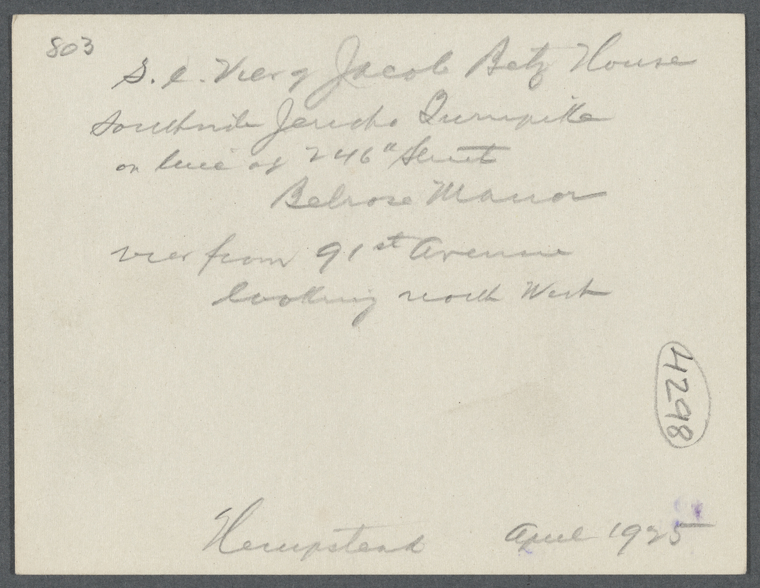 803
S. e. View of Jacob Betz House
Southside Jericho Turnpike
on line of 246th Street
Belrose Manor
view from 91st Avenue
looking north West
4298
Hempstead April 1925